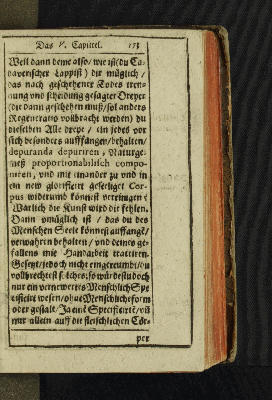 Das V. Capittel.
Weil dann deme also/ wie ist (du Ca-
davenischer Lappist) dir müglich /
das nach geschehener Todes tren-
nung und scheidung gesagter Dreyer
(die dann geschehen muß/ sol anders
Regeneratio vollbracht werden) du
dieselben Alle dreye / ein jedes vor
sich besonders auffangen/ behalten/
depuranda depuriren, Naturge-
meß proportionabilisch compo-
niren, und mit einander zu und in
ein new glorificirt geseeliget Cor-
pus widerumb könnest vereinigen?
Warlich die Kunst wird dir fehlen.
Dann unmüglich ist / das du des
Menschen Seele könnest auffange/
verwahren behalten / und deines ge-
fallens mie Handarbeit tractiren.
Gesetzt/ jedoch nicht eingereumbt/ du
vollbrechtest solches: so würdestu doch
nur ein vernewertes Menschlich Spe-
cificirt wesen/ ohne Menschliche form
oder gestalt/ Ja eine Specificirte/ uñ
nur allein auff die fleischlichen Cör-
per